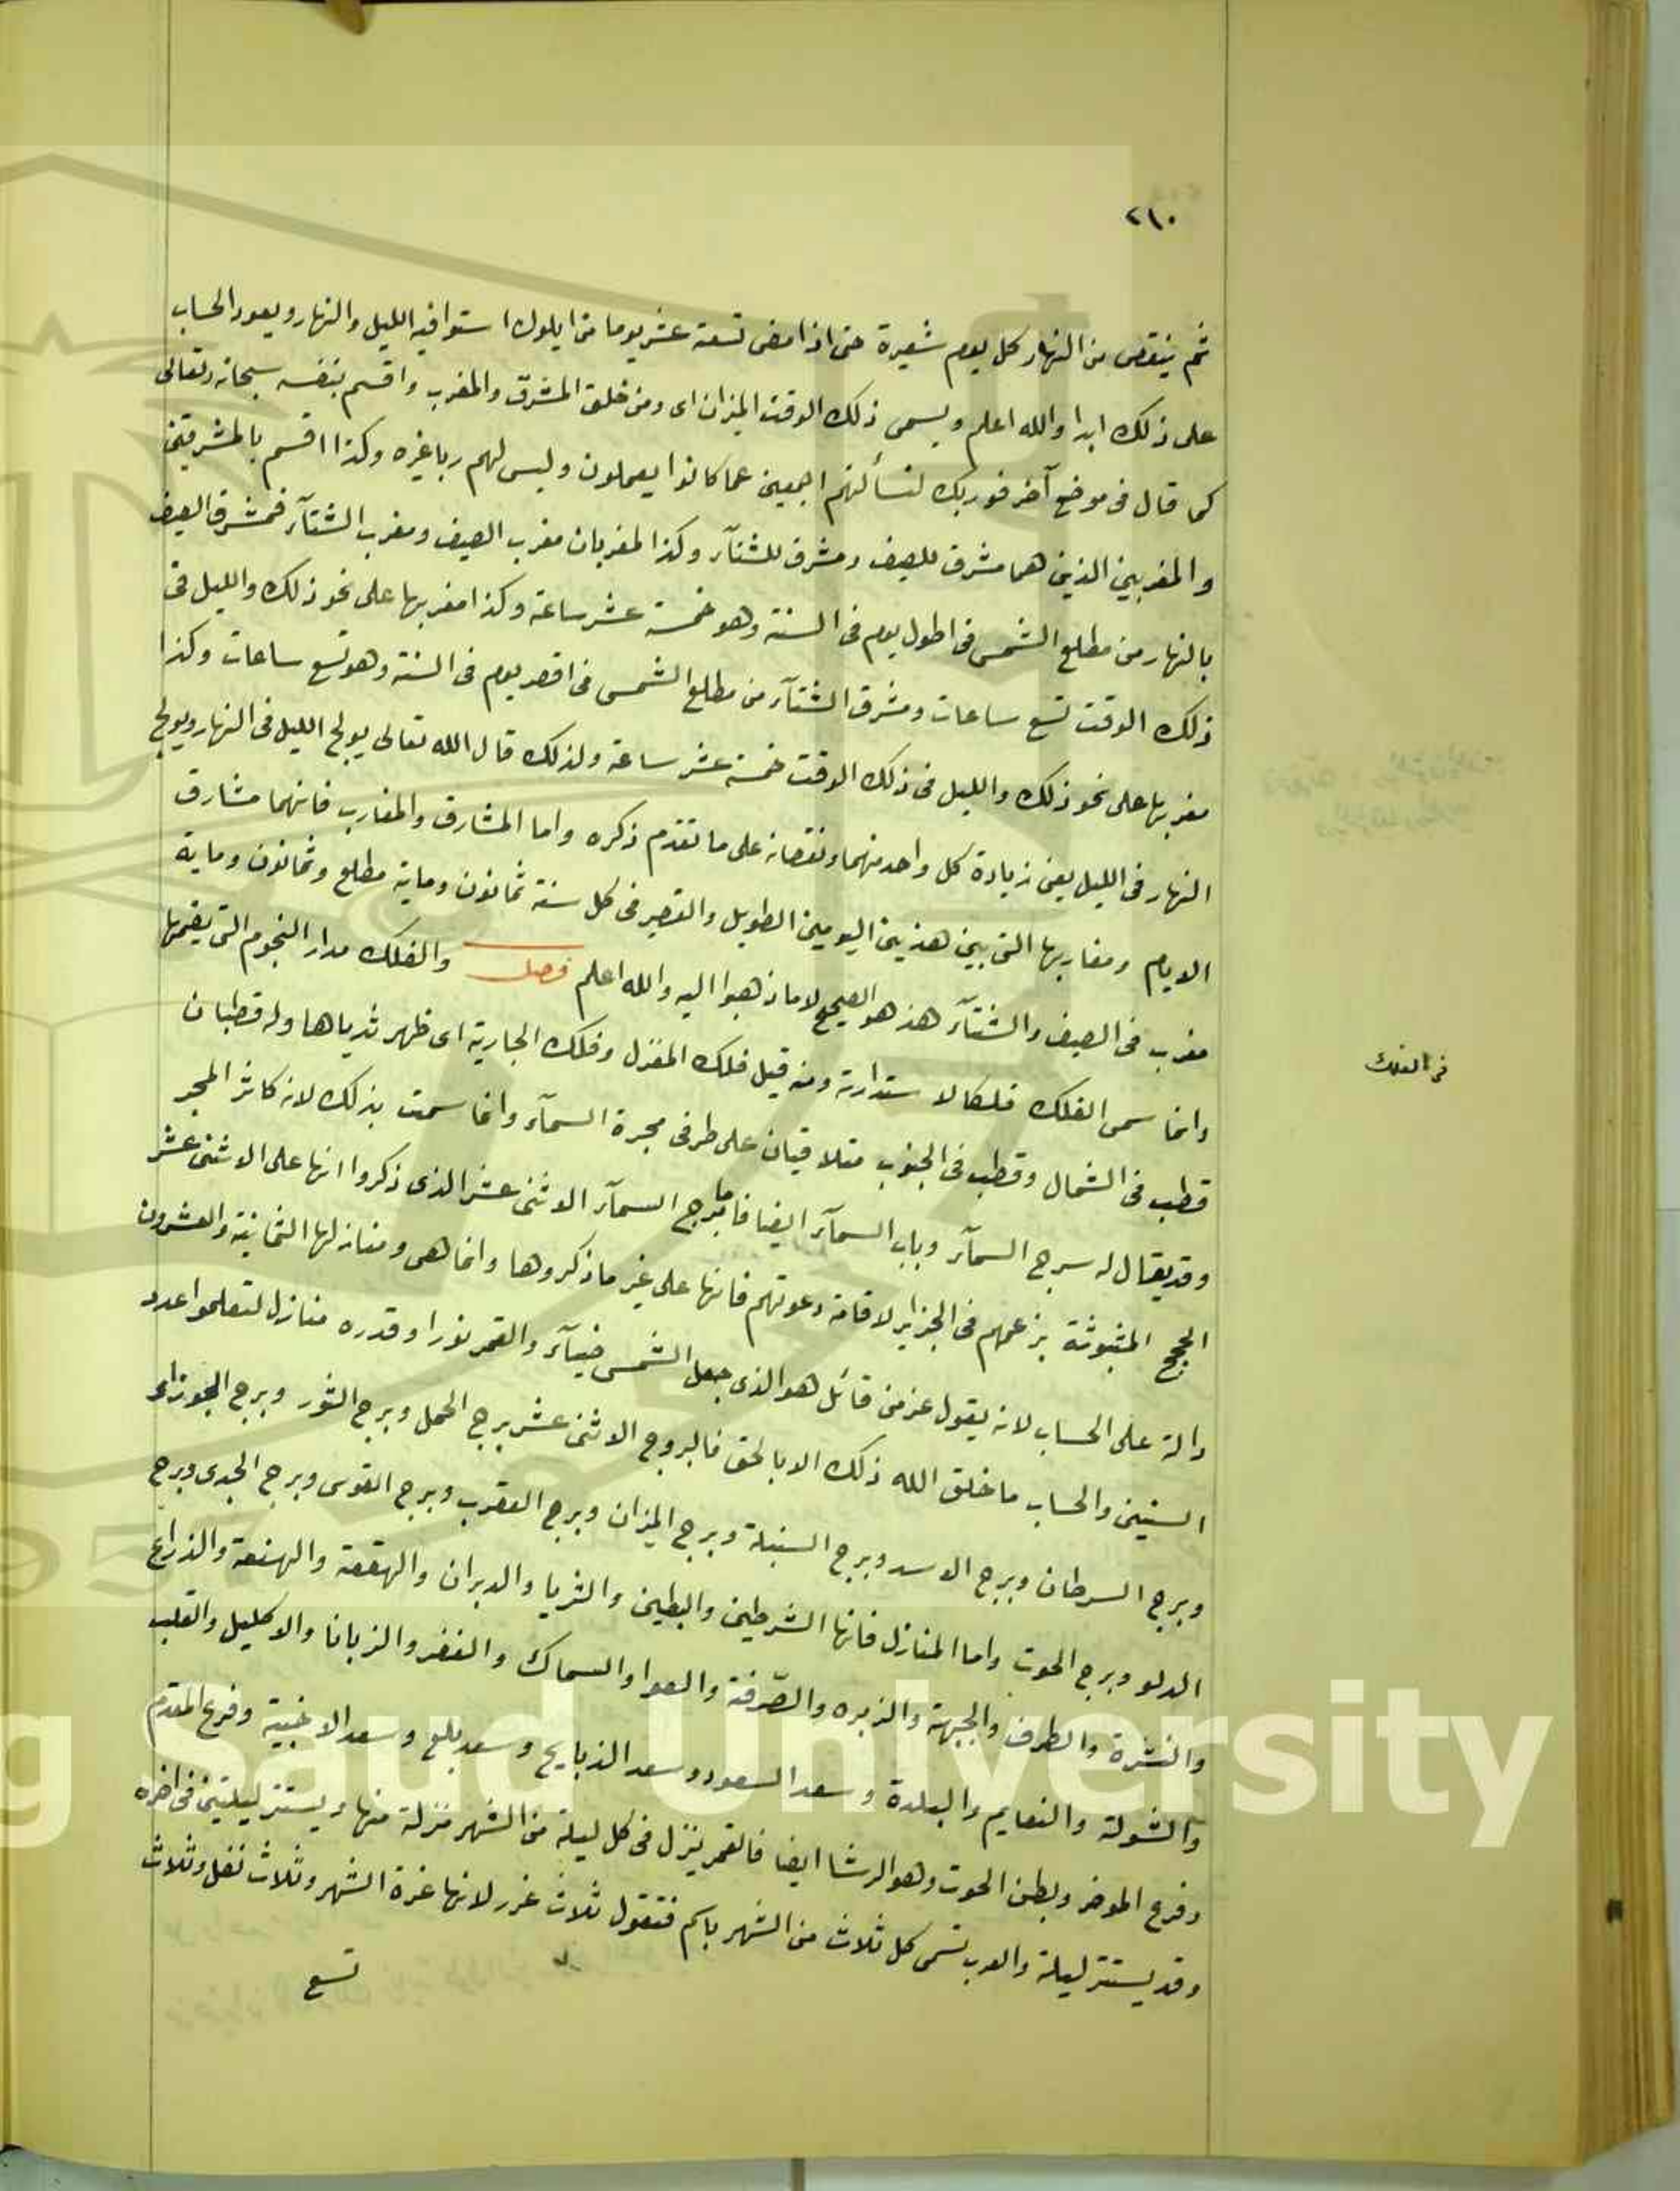 ٢١٠
ثم ينقص من النهار كل يوم شعيرة حتى اذا مضى تسعة عشر يوما من ايلول استوا فيه الليل والنهار ويعود الحساب
على ذلك ابدا والله اعلم ويسمى ذلك الوقت الميزان اى ومن خلق المشرق والمغرب واقسم بنفسه سبحانه وتعالى
كما قال فى موضع آخر فوربك لنسألنهم اجمعين عما كانوا يعملون وليس لهم ربا غيره وكذا اقسم بالمشرقين
والمغربين الذين هما مشرق للصيف ومشرق للشتآء وكذا المغربان مغرب الصيف ومغرب الشتآء فمشرق الصيف
بالنهار من مطلع الشمس فى اطول يوم فى السنة وهو خمسة عشر ساعة وكذا مغربها على نحو ذلك والليل فى
ذلك الوقت تسع ساعات ومشرق الشتآء من مطلع الشمس فى اقصر يوم فى السنة وهو تسع ساعات وكذا
مغربها على نحو ذلك والليل فى ذلك الوقت خمسة عشر ساعة ولذلك قال الله تعالى يولج الليل فى النهار ويولج
النهار فى الليل يعنى زيادة كل واحد منهما ونقصانه على ما تقدم ذكره واما المشارق والمغارب فانهما مشارق
الايام ومغاربها التى بين هذين اليومين الطويل والقصير فى كل سنة ثمانون وماية مطلع وثمانون وماية
مغرب فى الصيف والشتآء هذ هو الصحيح لا ما ذهبوا اليه والله اعلم فصل والفلك مدار النجوم التى يضمها
وانما سمى الفلك فلكا لاستدارته ومنه قيل فلك المغزل وفلك الجارية اى ظهر ثدياها وله قطبان
فى الفلك
قطب فى الشمال وقطب فى الجنوب متلاقيان على طرفى مجرة السمآء وانما سمت بذلك لانه كاثر المجر
وقد يقال له سرج السمآء وباب السمآء ايضا فاما برج السمآء الاثنى عشر الذى ذكروا انها على الاثنى عشر
الحجج المثبوثة بزعمهم فى الجزاير لاقامة دعوتهم فانها على غير ما ذكروها وانما هى ومنازلها الثمانية والعشرون
دالة على الحساب لانه يقول عز من قائل هو الذى جعل الشمس ضيآء والقمر نورا وقدره منازل لتعلموا عدد
السنين والحساب ما خلق الله ذلك الا بالحق فالبروج الاثنى عشر برج الحمل وبرج الثور وبرج الجوزاء
وبرج السرطان وبرج الاسد وبرج السنبلة وبرج الميزان وبرج العقرب وبرج القوس وبرج الجدى وبرج
الدلو وبرج الحوت واما المنازل فانها الشرطين والبطين والثريا والدبران والهقعة والهنعة والذراع
والنثرة والطرف والجبهة والزبره والصّرفة والعوا والسماك والغفر والزبانا والاكليل والقلب
والشولة والنعايم والبلدة وسعد السعود وسعد الذبايح وسعد بلع وسعد الاخبية وفرع المقدم
وفرع الموخر وبطن الحوت وهو الرشا ايضا فالقمر ينزل فى كل ليلة من الشهر منزلة منها ويستتر ليلتين فى اخره
وقد يستتر ليلة والعرب تسمى كل ثلاث من الشهر باسم فتقول ثلاث غرر لانها غرة الشهر وثلاث نفل وثلاث
تسع